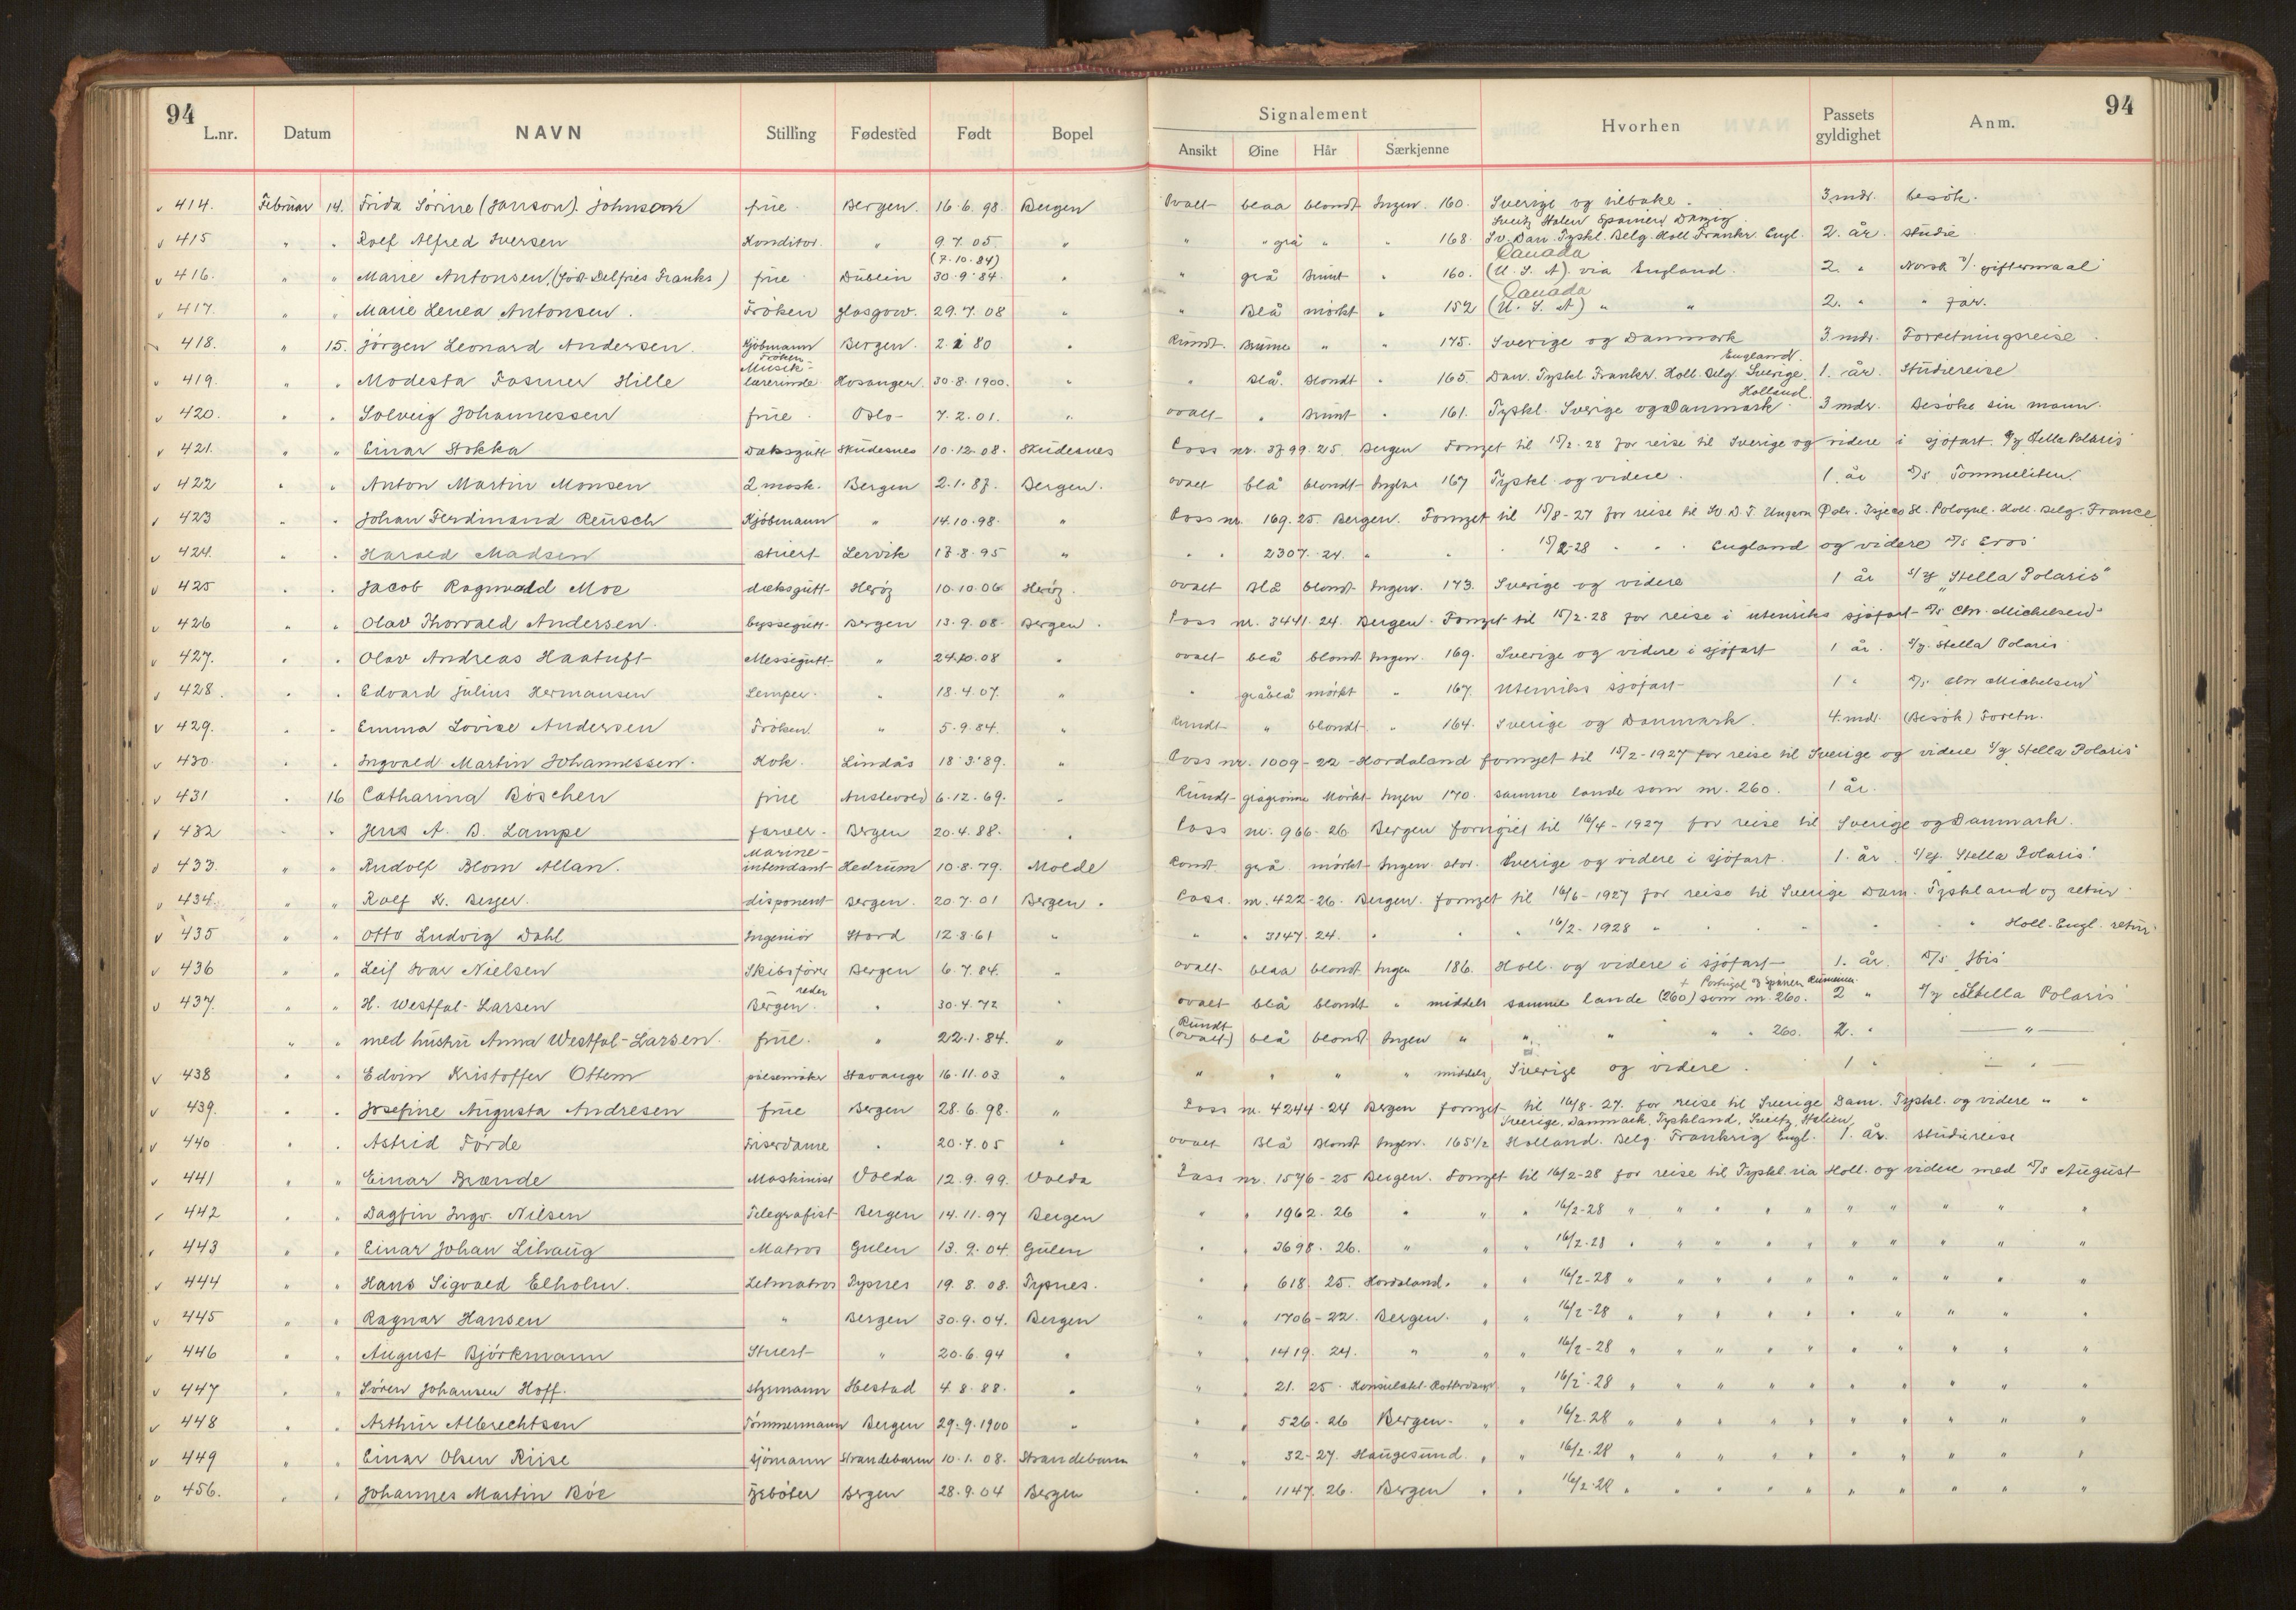 94
94
L.nr. Datum NAVN Stilling Fødested Født Bopel Signalement Ansikt Øine Hår Særkjenne Hvorhen Passets gyldighet Anm.
414. Februar 14. Frida Sörine (Janson). Johnson frue Bergen. 16.6.98. Bergen Ovalt blaa blondt Ingen. 160. Sverige og tilbake. 3 mdr. besök.
Sveitz Italen Spanien, Danzig
415 " " Rolf Alfred Iversen Konditor. " 9.7.05. " " " grå " " 168. Sv. Dan. Tyskl. Belg. Holl. Frankr. Engl. 2. år. studie
(7.10.84) Canada
416. " " Marie Antonsen, (född Delfries Franks) frue Dublin 30.9.84. " " grå Brunt " 160. (U.S.A). via England. 2. " Norsk v/. giftermaal
Canada
417. " " Marie Lenea Antonsen. Fröken Glasgow. 29.7.08 " " Blå mörkt " 152 (U.S.A) " " 2. " " far.
418. " 15. Jörgen Leonard Andersen. Kjöbmann Bergen. 2.1.80 " Rundt. Brune " " 175. Sverige og Danmark 3. mdr. Forretningsreise.
Fröken Musik- England.
419. " " Modesta Fasmer Hille lærerinde Hosanger. 30.8.1900. " " Blå. Blondt " 165. Dan. Tyskl. Frankr. Holl. Belg. Sverige. 1. år. Studiereise
Holland.
420. " " Solveig Johannessen frue. Oslo- 7.2.01. " ovalt " Brunt " 161. Tyskl. Sverige og Danmark 3 mdr. Besöke sin mann.
421. " " Einar Stokka Dæksgutt Skudesnes 10.12.08. Skudesnes Pass nr. 3799.25. Bergen Fornyet til 15/2-28 for reise til Sverige og videre i sjöfart. S/y Stella Polaris
422 " " Anton Martin Monsen 2 mask. Bergen 2.1.87. Bergen. ovalt blå blondt Ingen 167 Tyskl. og videre. 1. år D/S. Tommeliten.
423 " " Johan Ferdinand Reusch Kjöbmann " 14.10.98. " Pass nr. 169.25. Bergen. Fornyet til 15/8-27 for reise til Sv. D. T. Ungarn Holl. Belg. France
424. " " Harald Madsen stuert Lervik 17.8.95 " " " 2307.24. " " 15/2-28 " " " England og videre D/S Eros
425 " " Jacob Ragnvald Moe dæksgutt Heröy 10.10.06 Heröy. ovalt Blå blondt Ingen. 173. Sverige og videre 1 år S/y "Stella Polaris"
426 " " Olav Thorvald Andersen. byssegutt. Bergen 13.9.08. Bergen. Pass nr. 3441.24. Bergen. Fornyet til 15/2-28 for reise i utenriks sjöfart D/S Chr. Michelsen
427. " " Olav Andreas Haatuft Messegutt. " 24.10.08 " ovalt blå blondt Ingen. 169. Sverige og videre i sjöfart 1 år. S/y. Stella Polaris
428. " " Edvard Julius Hermansen Lemper. " 18.4.07. " " gråblå mörkt " 167. Utenriks sjöfart 1 " D/S. Chr Michelsen
429. " " Emma Lovise Andersen Fröken. " 5.9.84. " Rundt " blondt " 164. Sverige og Danmark. 4. md. (Besök) Foretn.
430. " " Ingvald Martin Johannessen. Kok. Lindås 18.3.89. " Pass nr. 1009-22 Hordaland fornyet til 15/2-1927 for reise til Sverige og videre S/y Stella Polaris
431 " 16 Catharina Böschen frue Austevold 6.12.69. " Rundt grågrönne Mörkt Ingen 170. samme lande som nr. 260. 1 år.
432 " " Jens A. B. Lampe farver. Bergen 20.4.88. " Pass nr. 966-26 Bergen fornyiet til 16/4-1927 for reise til Sverige og Danmark.
Marine-
433. " " Rudolf Blom Allan. intendant Hedrum 10.8.79. Molde Rundt grå mörkt Ingen stor. Sverige og videre i sjöfart. 1. år. S/y. Stella Polaris
434. " " Rolf K. Beyer. disponent Bergen. 20.7.01 Bergen. Pass. nr. 422-26. Bergen. fornyet til 16/6-1927 for reise til Sverige Dan. Tyskland og retur
435 " " Otto Ludvig Dahl Ingeniör Stord 12.8.61 " " " 3147.24. " " " 16/2-1928 " " " " " Holl. Engl. retur
436 " " Leif Ivar Nielsen Skibsförer Bergen 6.7.84. " ovalt blaa blondt Ingen 186. Holl. og videre i sjöfart 1. år. D/S Ibis
reder + Portugal og Spanien Rumænien
437. " " H. Westfal-Larsen Bergen. " 30.4.72 " ovalt blå blondt " middels samme lande (260) som nr. 260. 2 " S/y Stella Polaris
Rundt
" " med hustru Anna Westfal-Larsen. frue. " 22.1.84. " (ovalt) blå blondt Ingen " " " " " 260. 2. " "
438 " " Edvin Kristoffer Ottem pölsemaker Stavanger 16.11.03 " " " " " middels Sverige og videre. 1 " "
439. " " Josefine Augusta Andresen frue Bergen 28.6.98. " Pass nr. 4244-24 Bergen fornyet til 16/8-27. for reise til Sverige Dan. Tyskl. og videre " "
Sverige, Danmark, Tyskland, Sveitz, Italien,
440 " " Astrid Förde Friserdame " 20.7.05 " ovalt Blå Blondt Ingen. 165 1/2 Holland. Belg. Frankrig Engl. 1. år. studiereise
441 " " Einar Brænde Maskinist Volda 12.9.99. Volda Pass nr. 1576-25 Bergen. Fornyet til 16/2-28 for reise til Tyskl. via Holl. og videre med D/S August
442 " " Dagfin Ingv. Nilsen Telegrafist Bergen 14.11.97 Bergen " " 1962.26 " " " 16/2-28 " " " " " " " " " "
443 " " Einar Johan Lihaug Matros Gulen 13.9.04. Gulen " " 3698.26. " " " 16/2.28 " " " " " " " " " "
444 " " Hans Sigvald Elholm. Letmatros Tysnes 19.8.08. Tysnes. " " 618.25. Hordaland. " " 16/2-28 " " " " " " " " " "
445 " " Ragnar Hansen " Bergen 30.9.04. Bergen " " 1706-22. Bergen. " " 16/2-28 " " " " " " " " " "
446 " " August Björkmann Stuert " 20.6.94 " " " 1419.24. " " " 16/2-28 " " " " " " " " " "
447 " " Sören Johansen Hoff. styrmann Hestad 4.8.88. " " " 21.25. Konsulatet Rotterdam " 16/2-28 " " " " " " " " " "
448 " " Arthur Albrechtsen Tömmermann Bergen 29.9.1900 " " " 526.26 Bergen. " " 16/2.28 " " " " " " " " " "
449 " " Einar Olsen Riise sjömann Strandebarm 10.1.08. Strandebarm " " 32-27. Haugesund. " " 16/2.28 " " " " " " " " " "
456. " " Johannes Martin Böe fyrböter Bergen 28.9.04 Bergen " " 1147.26. Bergen " " 16/2.28 " " " " " " " " " "